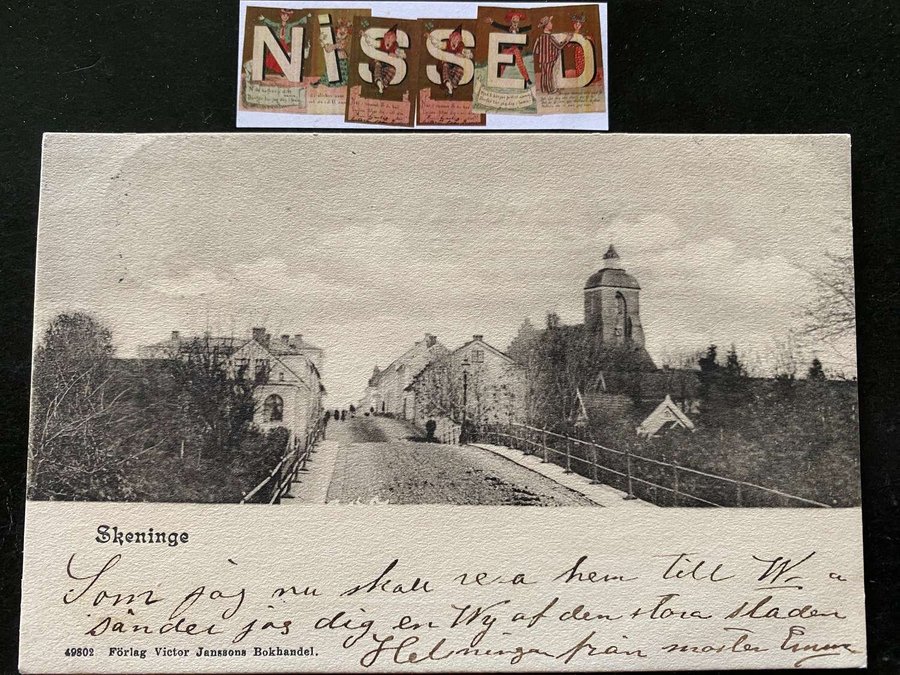 NiSSED
Skeninge
Som jag nu skall resa hem till W-a
sänder jag dig en Wy af den stora staden
49802 Förlag Victor Janssons Bokhandel.
Helsningar från moster Emma